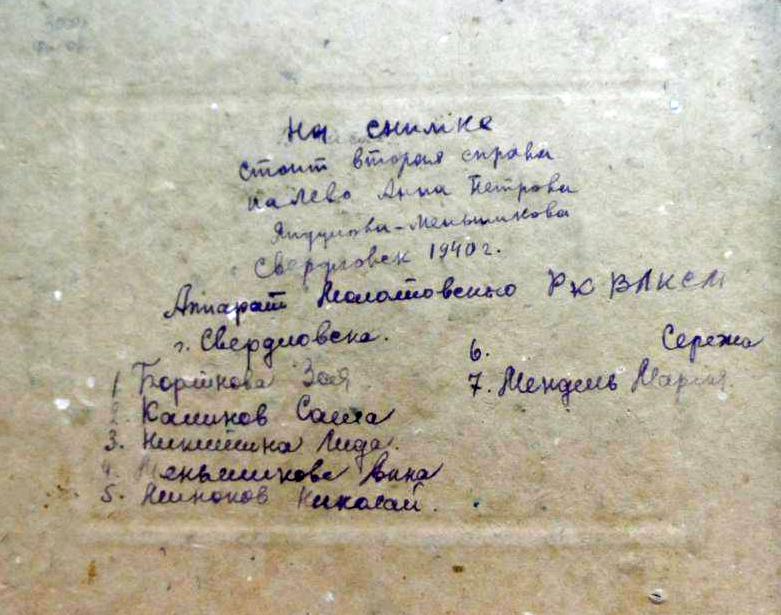 на снимке
стоит вторая справа
налево Анна Петрова
-Меньшикова
Свердловск 1940 г.
Аппарат Молотовского РК ВЛКСМ
г. Свердловска.
1 Зоя
2. Саша
3. Никитина Лида.
4. Меньшикова Анна
5. Николай.
6. Сережа
7. Мендель Мария